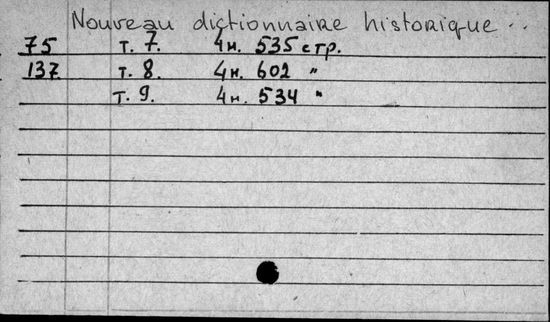 Nouveau dictionnaire historique ..
75 т. 7. 4н. 535 стр.
137 т. 8. 4н. 602 "
т. 9. 4н. 534 "